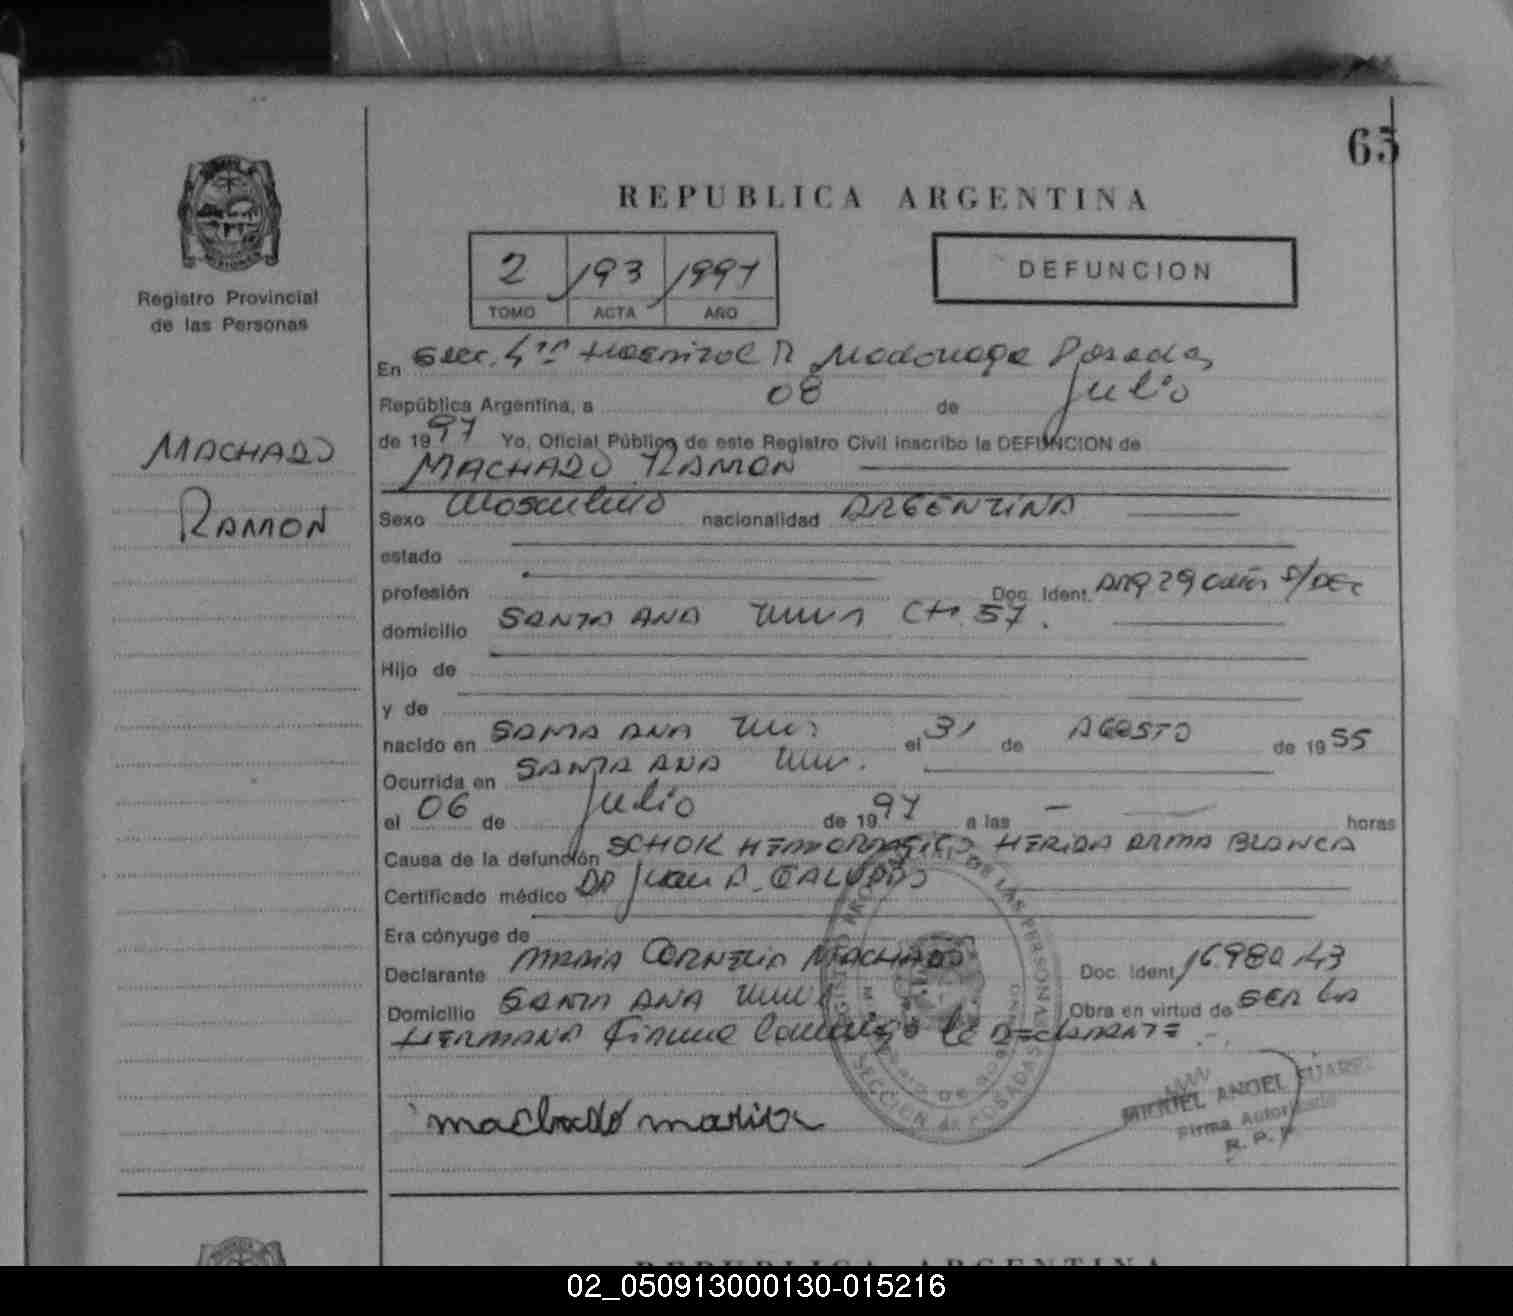 65
REPUBLICA ARGENTINA
2 193 1997
TOMO ACTA AÑO
DEFUNCION
Registro Provincial
de las Personas
MACHADO
RAMON
En Secc. 4ta R Madariaga Posadas
República Argentina, a 08 de Julio
de 1997 Yo, Oficial Público de este Registro Civil inscribo la DEFUNCION de
MACHADO RAMON
Sexo Masculino nacionalidad ARGENTINA
estado
profesión Doc. Ident.
domicilio SANTA ANA CH. 57.
Hijo de
y de
nacido en SANTA ANA el 31 de AGOSTO de 1955
Ocurrida en SANTA ANA
el 06 de Julio de 1997 a las — horas
Causa de la defunción SCHOK HEMORRAGICO HERIDA ARMA BLANCA
Certificado médico DR Juan A. GALUPPO
Era cónyuge de
Declarante MARIA CORNELIA MACHADO Doc. Ident. 16.980.143
Domicilio SANTA ANA Obra en virtud de SER LA
HERMANA Firma Conmigo la DECLARANTE
machado maria
MIGUEL ANGEL SUAREZ
Firma Autorizada
R. P. P.
REGISTRO PROVINCIAL DE LAS PERSONAS
SECCION 4a. POSADAS
REPUBLICA ARGENTINA
02_050913000130-015216